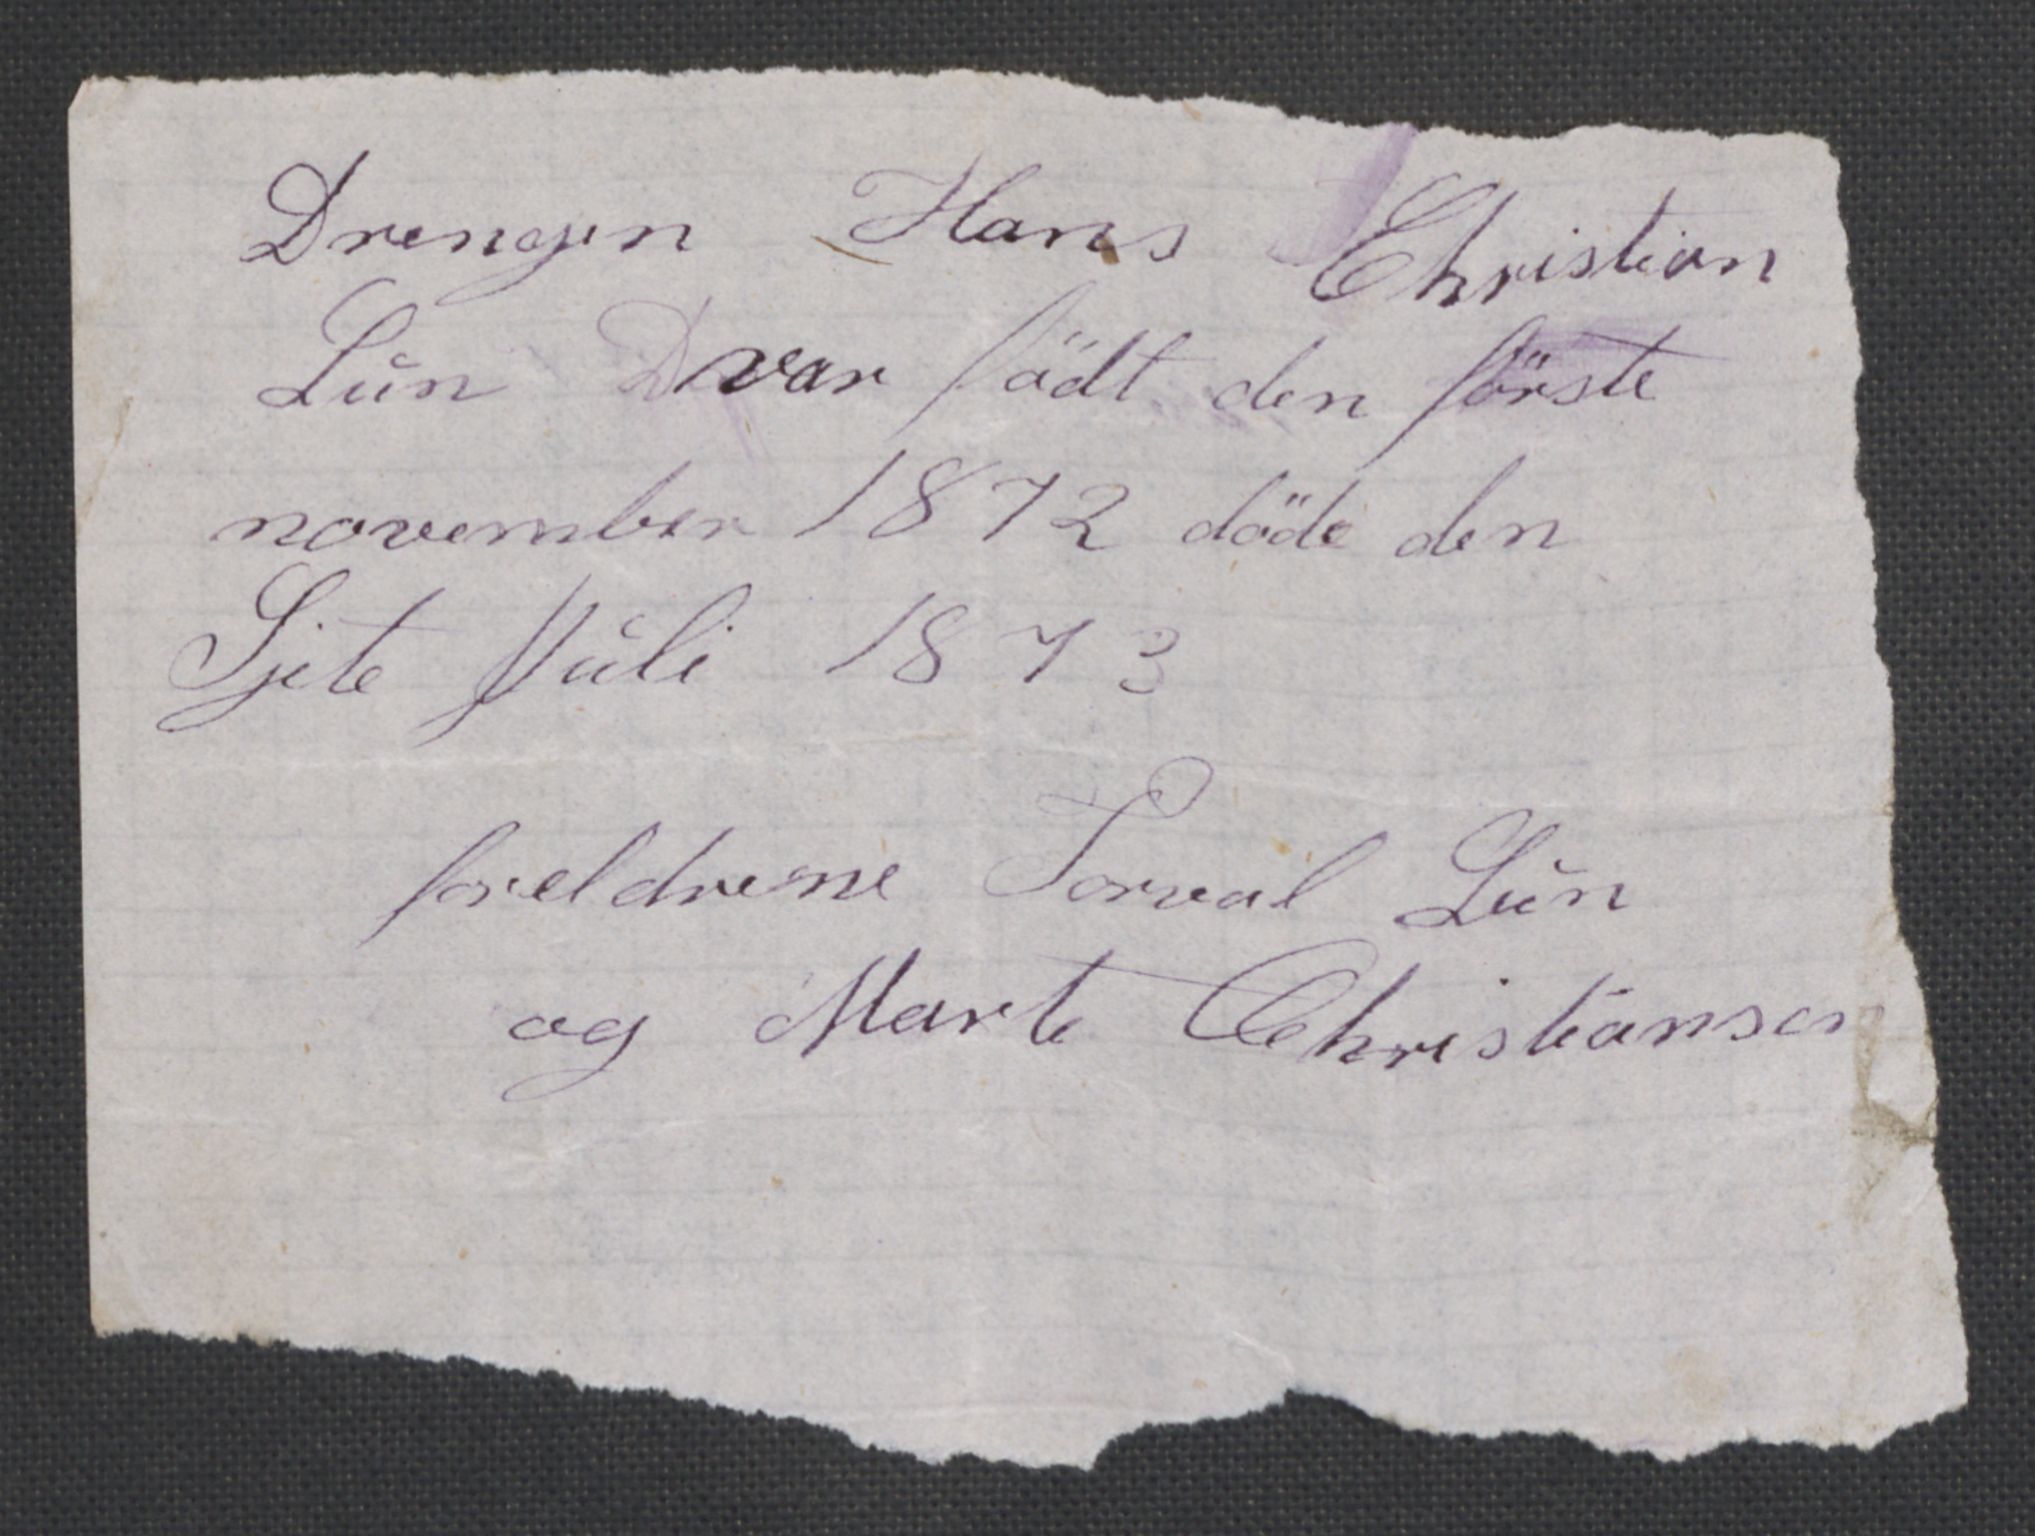 Drengen Hans Christian
Lun var födt den förste
november 1872 döde den
Sjete Juli 1873
foreldrene Torval Lun
og Marte Christiansen